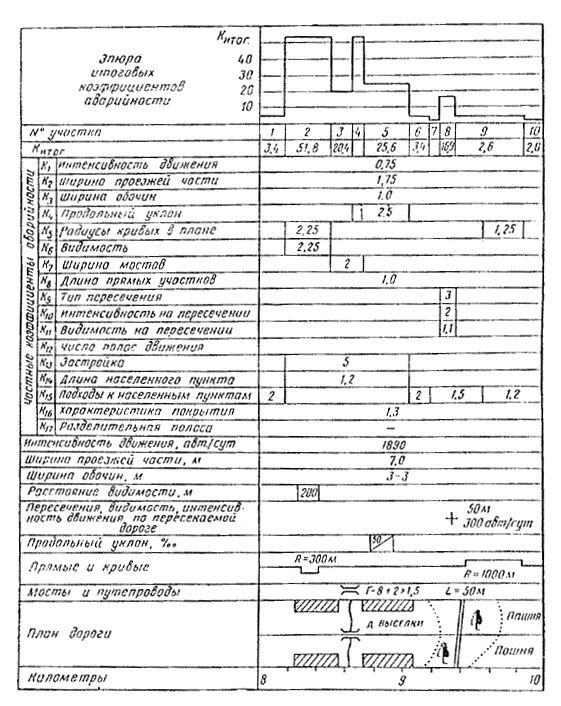 Kитог.
Эпюра
итоговых
коэффициентов
аварийности
40
30
20
10
N° участка 1 2 3 4 5 6 7 8 9 10
Kитог 3,4 51,8 20,4 25,6 3,4 16,9 2,6 2,0
Частные коэффициенты аварийности
K1 Интенсивность движения 0,75
K2 Ширина проезжей части 1,75
K3 Ширина обочин 1.0
K4 Продольный уклон 2,5
K5 Радиусы кривых в плане 2,25 1,25
K6 Видимость 2,25
K7 Ширина мостов 2
K8 Длина прямых участков 1,0
K9 Тип пересечения 3
K10 Интенсивность на пересечении 2
K11 Видимость на пересечении 1,1
K12 Число полос движения
K13 Застройка 5
K14 Длина населенного пункта 1,2
K15 Подходы к населенным пунктам 2 2 1,5 1,2
K16 Характеристика покрытия 1,3
K17 Разделительная полоса —
Интенсивность движения, авт/сут 1890
Ширина проезжей части, м 7,0
Ширина обочин, м 3-3
Расстояние видимости, м 200
Пересечения, видимость, интенсив-
ность движения, по пересекаемой
дороге
50м
300 авт/сут
Продольный уклон, ‰ 50
Прямые и кривые R=300м R=1000м
Мосты и путепроводы Г-8+2×1,5 L=50м
План дороги д. Выселки Пашня
Пашня
Километры 8 9 10